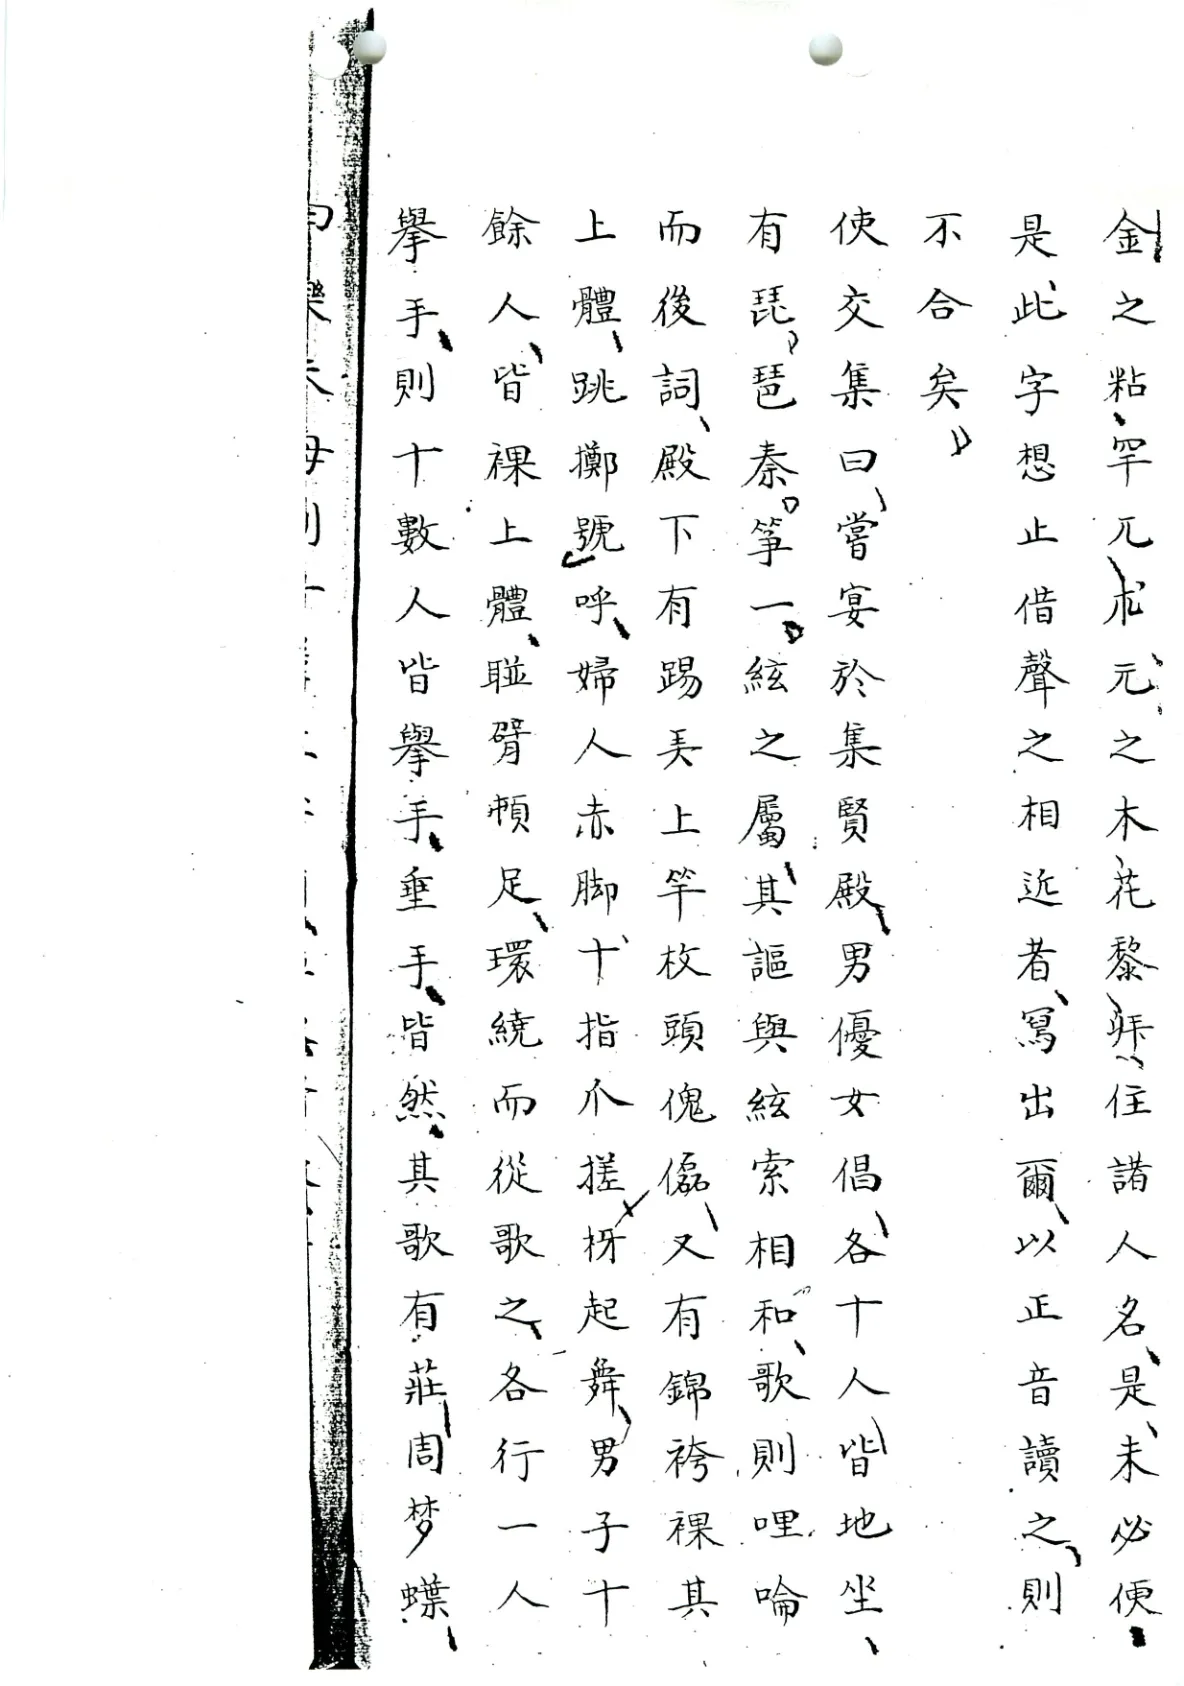 金之粘罕兀朮元之木花黎拜住諸人名是未必便
是此字想止借聲之相近者寫出爾以正音讀之則
不合矣
使交集曰嘗宴於集賢殿男優女倡各十人皆地坐
有琵琶秦箏一絃之屬其謳與絃索相和歌則哩喻
而後詞殿下有踢弄上竿杖頭傀儡又有錦袴裸其
上體跳擲號呼婦人赤脚十指爪搓枒起舞男子十
餘人皆裸上體聯臂頓足環繞而從歌之各行一人
舉手則十數人皆舉手垂手皆然其歌有莊周梦蝶